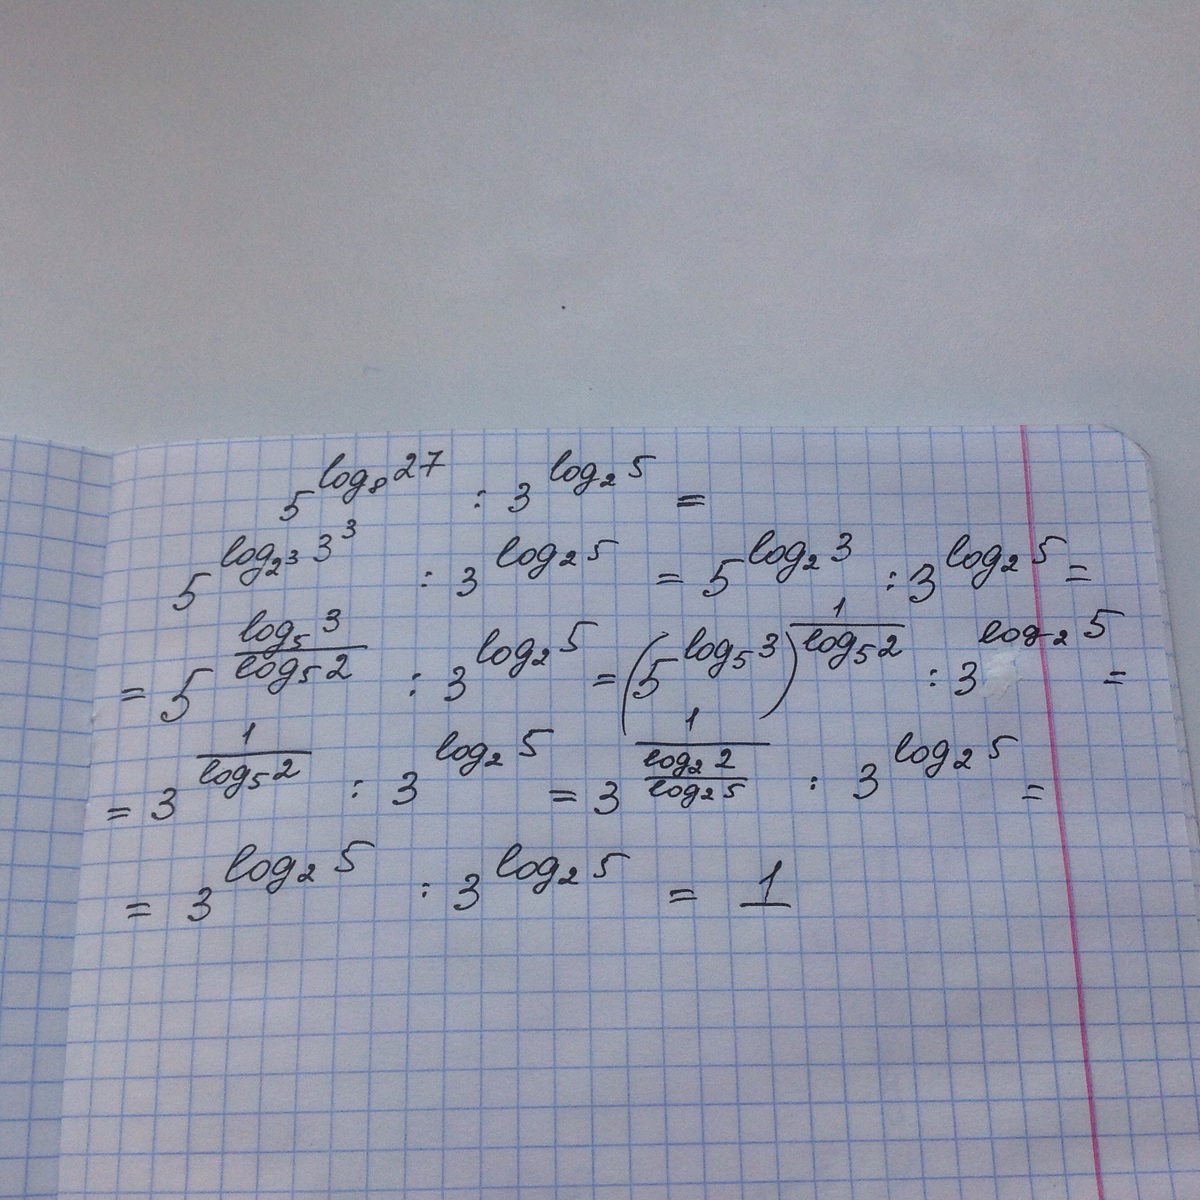 5^{log_8 27} : 3^{log_2 5} =
5^{log_{2^3} 3^3} : 3^{log_2 5} = 5^{log_2 3} : 3^{log_2 5} =
= 5^{\frac{log_5 3}{log_5 2}} : 3^{log_2 5} = (5^{log_5 3})^{\frac{1}{log_5 2}} : 3^{log_2 5} =
= 3^{\frac{1}{log_5 2}} : 3^{log_2 5} = 3^{\frac{1}{\frac{log_2 2}{log_2 5}}} : 3^{log_2 5} =
= 3^{log_2 5} : 3^{log_2 5} = 1